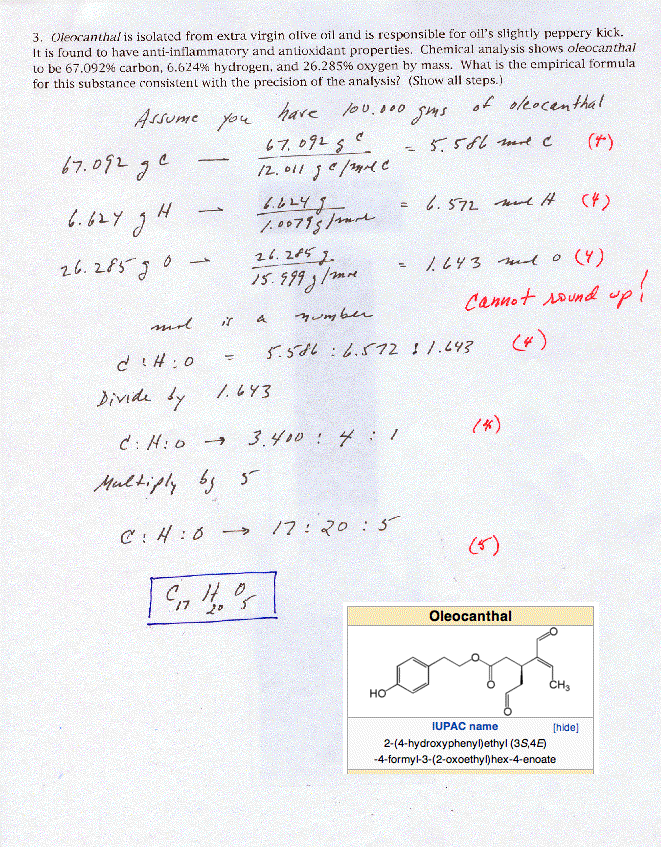 3. Oleocanthal is isolated from extra virgin olive oil and is responsible for oil's slightly peppery kick.
It is found to have anti-inflammatory and antioxidant properties. Chemical analysis shows oleocanthal
to be 67.092% carbon, 6.624% hydrogen, and 26.285% oxygen by mass. What is the empirical formula
for this substance consistent with the precision of the analysis? (Show all steps.)
Assume you have 100.000 gms of oleocanthal
67.092 g C — 67.092 g C / 12.011 g C/mol C = 5.586 mol C (4)
6.624 g H — 6.624 g / 1.0079 g/mol = 6.572 mol H (4)
26.285 g O — 26.285 g / 15.999 g/mol = 1.643 mol O (4)
Cannot round up!
mol is a number
C : H : O = 5.586 : 6.572 : 1.643 (4)
Divide by 1.643
C : H : O → 3.400 : 4 : 1 (4)
Multiply by 5
C : H : O → 17 : 20 : 5 (5)
C17 H20 O5
Oleocanthal
O
O
HO
O
CH3
O
IUPAC name [hide]
2-(4-hydroxyphenyl)ethyl (3S,4E)
-4-formyl-3-(2-oxoethyl)hex-4-enoate